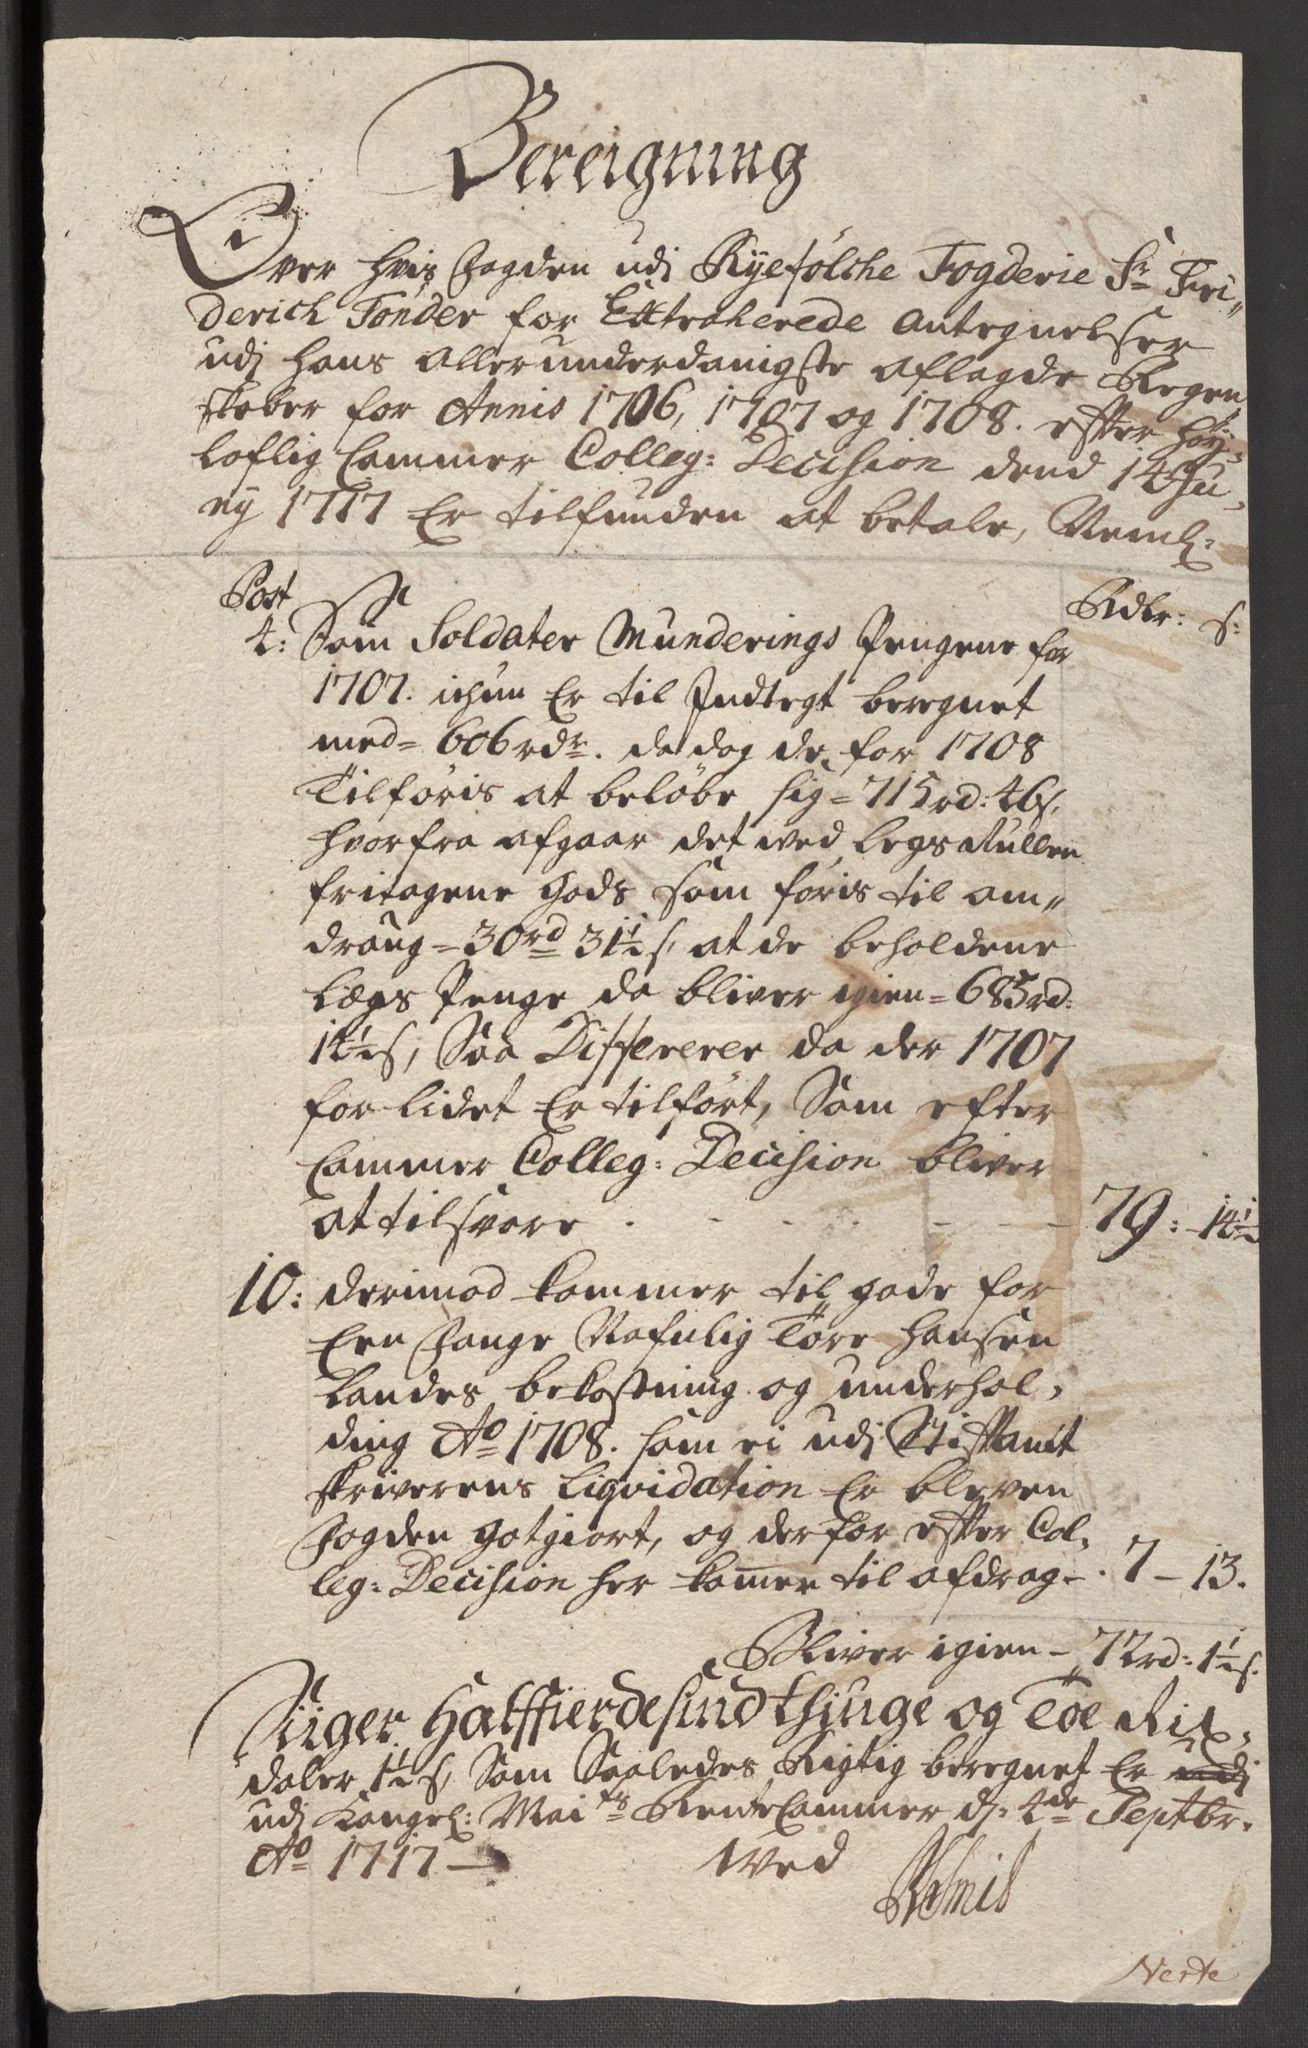 Bereigning
Over hvis Fogden udj Ryefølche Fogderie Sr Fri„
derich Tonder for Extraherede Antegnelser
udj hans allerunderdanigste aflagde Regen
skaber for Annis 1706, 1707 og 1708. efter Høy„
loflig Cammer Colleg: Decision dend 14 Ju„
ny 1717 Er tilfunden at betale, Neml:
Post
Rdlr: s:
4: Som Soldater Munderings Pengene for
1707. ichun Er til Indtegt beregnet
med= 606 rdr. da dog de for 1708
Tilføris at beløbe sig= 715 rd: 46 s,
hvorfra afgaar det ved Legs Rullen
fritagene Gods som føris til am„
draug= 30 rd 31½ s, at de beholdene
Legs Penge da bliver igien= 685 rd:
14½ s, Saa Differerer da der 1707
for lidet Er tilført, Som efter
Cammer Colleg: Decision bliver
at tilsvare . - - - - - 79: - 14½
10: derimod kommer til gode for
Een Fange Nafnlig Tore Hansen
Landes bekostning og underhol„
ding Ao 1708. som ei udj Stiftamt
skriverens Liqvidation Er bleven
Fogden gotgiort, og derfor efter Col„
leg: Decision her komer til afdrag - . 7 - 13.
Bliver igien - 72 rd: 1½ s.
Siiger Halffierdesindthiuge og Toe Rix„
daler 1½ s, Som Saaledes Rigtig beregnet Er udj
udj Kongel: Maits RenteCammer d: 4de Septbr.
Ao 1717
Ved
Nerte